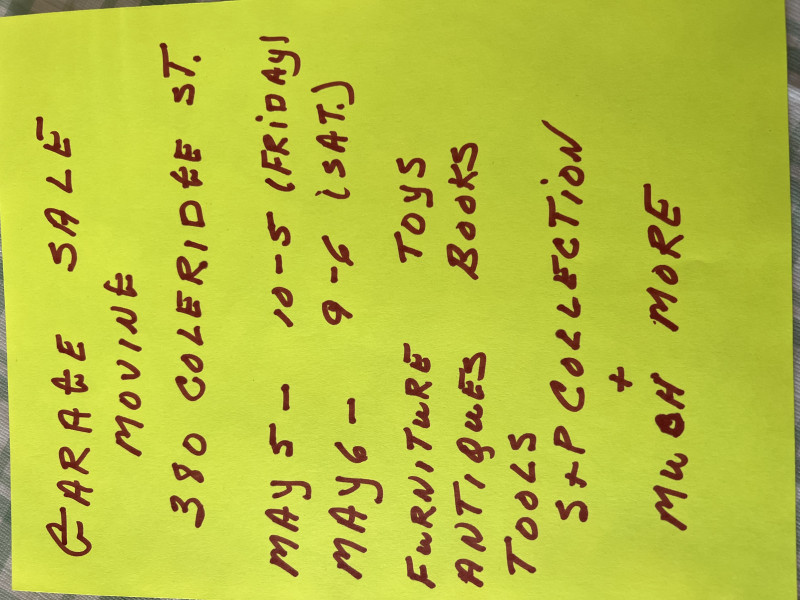 GARAGE SALE
MOVING
380 COLERIDGE ST.
MAY 5 - 10-5 (FRIDAY)
MAY 6 - 9-6 (SAT.)
FURNITURE TOYS
ANTIQUES BOOKS
TOOLS
S+P COLLECTION
+
MUCH MORE